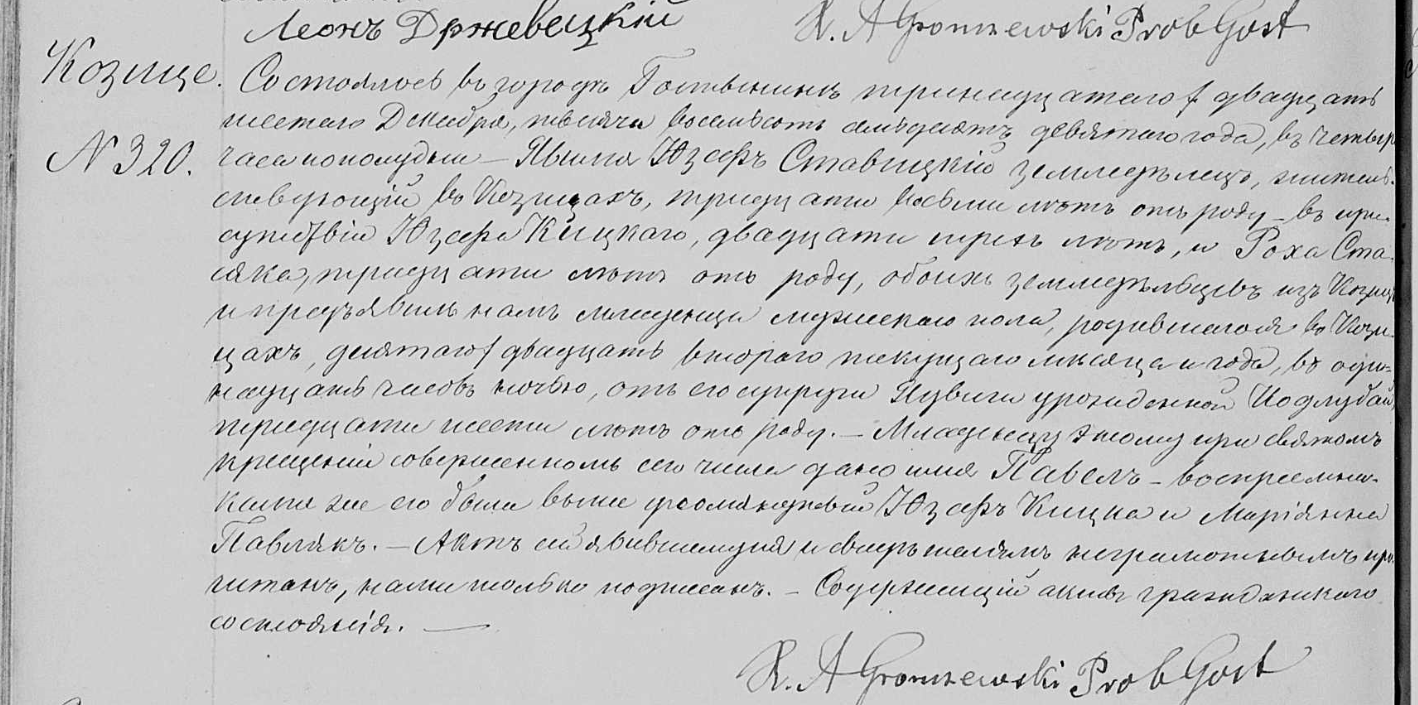 Леонъ Држевецкій
X. A Gromzewski Prob Gost
Козице. Состоялось въ городѣ Гостынинѣ тринадцатаго / двадцать
шестаго Декабря, тысяча восемьсотъ семьдесятъ девятаго года, въ четыре
N 320. часа пополудни – Явился Юзефъ Ставицкій земледѣлецъ, житель-
ствующій въ Козицахъ, тридцати восьми лѣтъ отъ роду – въ при-
сутствіи Юзефа Кицкаго, двадцати трехъ лѣтъ, и Роха Ста-
сяка, тридцати лѣтъ отъ роду, обоихъ земледѣльцевъ изъ Козицъ
и предъявилъ намъ младенца мужескаго пола, родившагося въ Кози-
цахъ, десятаго / двадцать втораго текущаго мѣсяца и года, въ оди-
надцать часовъ ночью, отъ его супруги Ядвиги урожденной
тридцати шести лѣтъ отъ роду. – Младенцу этому при святомъ
крещеніи совершенномъ сего числа дано имя Павелъ – воспреемни-
ками же его были выше Юзефъ Кицки и Маріянна
Павлякъ. – Актъ сей явившемуся и свидѣтелямъ неграмотнымъ про-
читанъ, нами только подписанъ. – Содержащій акты гражданскаго
состоянія. —
X. A Gromzewski Prob Gost